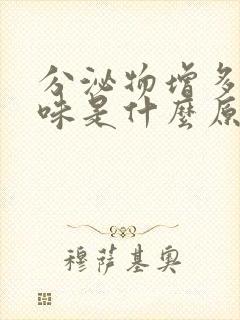 分泌物增多
味是什麼原
穆薩基奧